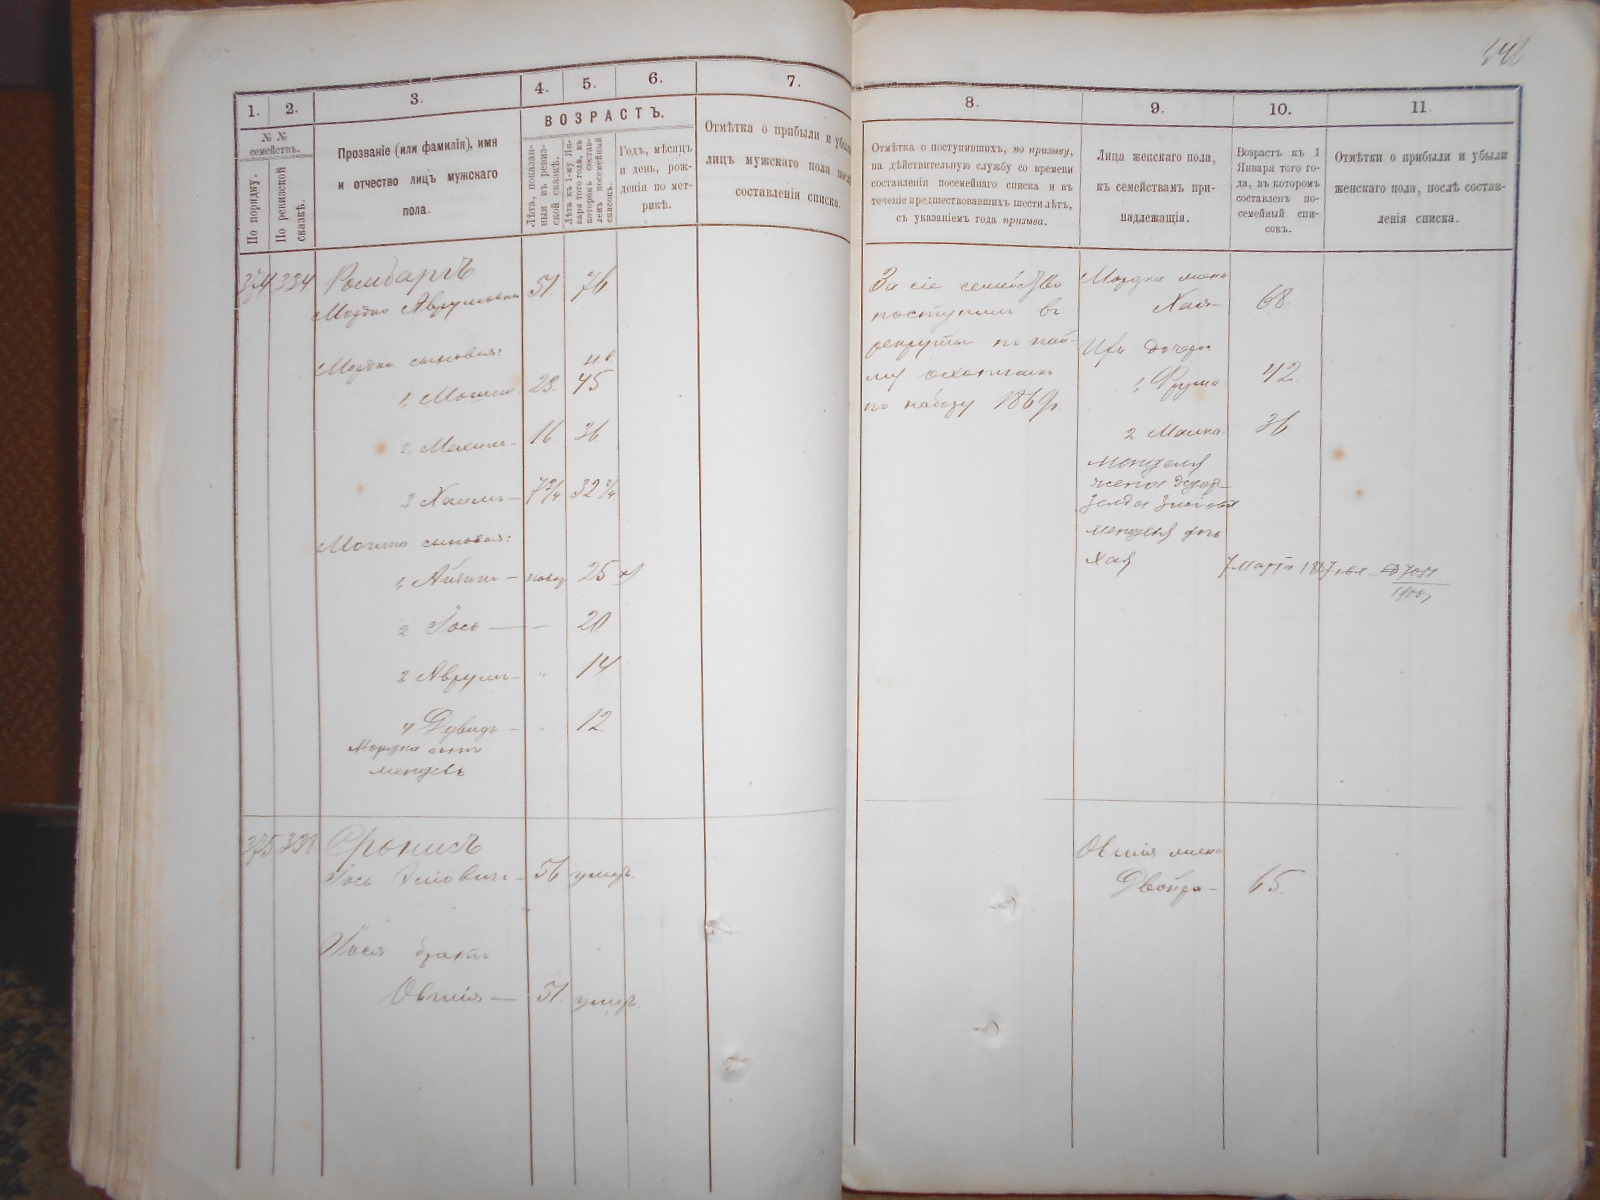 1.
2.
3.
4.
5.
6.
7.
№ №
семействъ.
По порядку.
По ревизской
сказкѣ.
Прозваніе (или фамилія), имя
и отчество лицъ мужскаго
пола.
ВОЗРАСТЪ.
Лѣта, показан-
ныя въ ревиз-
ской сказкѣ.
Лѣта къ 1-му Ян-
варя того года, въ
которомъ состав-
ленъ посемейный
списокъ.
Годъ, мѣсяцъ
и день, рож-
денія по мет-
рикѣ.
Отмѣтка о прибыли и убыли
лицъ мужскаго пола послѣ
составленія списка.
374 334 Ромбаргъ
Мордко Аврумовичъ 51. 76
Мордки сыновья:
1, Мошко 23. 45
2 Мехиль 16. 36
3 Хаимъ 7 3/4 32 3/4
Мошки сыновья:
1, 25
2 Іось — 20
2 Аврумъ — 14
4 Дувидъ — 12.
Мордки сынъ
Мендель
375
Іось 56 умеръ
Іося братъ
Овшія — 51. умеръ
8.
9.
10.
11
Отмѣтка о поступившихъ, по призыву,
на дѣйствительную службу со времени
составленія посемейнаго списка и въ
теченіе предшествовавшихъ шести лѣтъ,
съ указаніемъ года призыва.
Лица женскаго пола,
къ семействамъ при-
надлежащія.
Возрастъ къ 1
Января того го-
да, въ которомъ
составленъ по-
семейный спи-
сокъ.
Отмѣтки о прибыли и убыли
женскаго пола, послѣ состав-
ленія списка.
За сіе семейство
поступилъ въ
рекруты по най-
му охотникъ
по набору 1869г.
Мордки жена
Хая 68.
Ихъ дочери
1, Фрума 42
2 Малка 36
Менделя
жена
Зелда
Менделя дочь
Хая 7 Марта
Овшія жена
Двойра — 65.